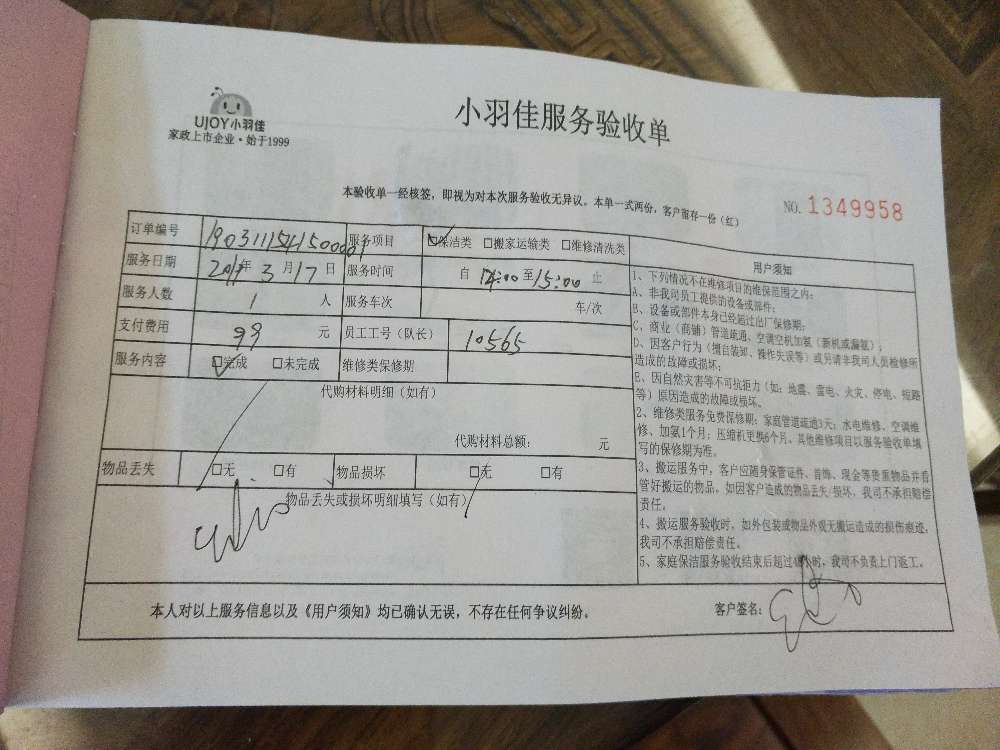 UJOY小羽佳
家政上市企业·始于1999
小羽佳服务验收单
本验收单一经核签，即视为对本次服务验收无异议。本单一式两份，客户留存一份（红）
NO. 1349958
订单编号 服务项目 保洁类 搬家运输类 维修清洗类
服务日期 年 3 月 17 日 服务时间 自 至 15:00 止
服务人数 1 人 服务车次 车/次
支付费用 99 元 员工工号（队长） 10565
服务内容 完成 未完成 维修类保修期
代购材料明细（如有）
代购材料总额： 元
物品丢失 无 有 物品损坏 无 有
物品丢失或损坏明细填写（如有）
用户须知
1、下列情况不在维修项目的维保范围之内：
A、非我司员工提供的设备或部件；
B、设备或部件本身已经超过出厂保修期；
C、商业（商铺）管道疏通、空调空机加氨（新机或漏氨）；
D、因客户行为（擅自装卸、操作失误等）或另请非我司人员检修所
造成的故障或损坏；
E、因自然灾害等不可抗力（如：地震、雷电、火灾、停电、短路
等）原因造成的故障或损坏。
2、维修类服务免费保修期：家庭管道疏通3天；水电维修、空调维
修、加氨1个月；压缩机更换6个月。其他维修项目以服务验收单填
写的保修期为准。
3、搬运服务中，客户应随身保管证件、首饰、现金等贵重物品并看
管好搬运的物品，如因客户造成的物品丢失/损坏，我司不承担赔偿
责任。
4、搬运服务验收时，如外包装或物品外观无搬运造成的损伤痕迹，
我司不承担赔偿责任。
5、家庭保洁服务验收结束后超过 小时，我司不负责上门返工。
本人对以上服务信息以及《用户须知》均已确认无误，不存在任何争议纠纷。 客户签名：